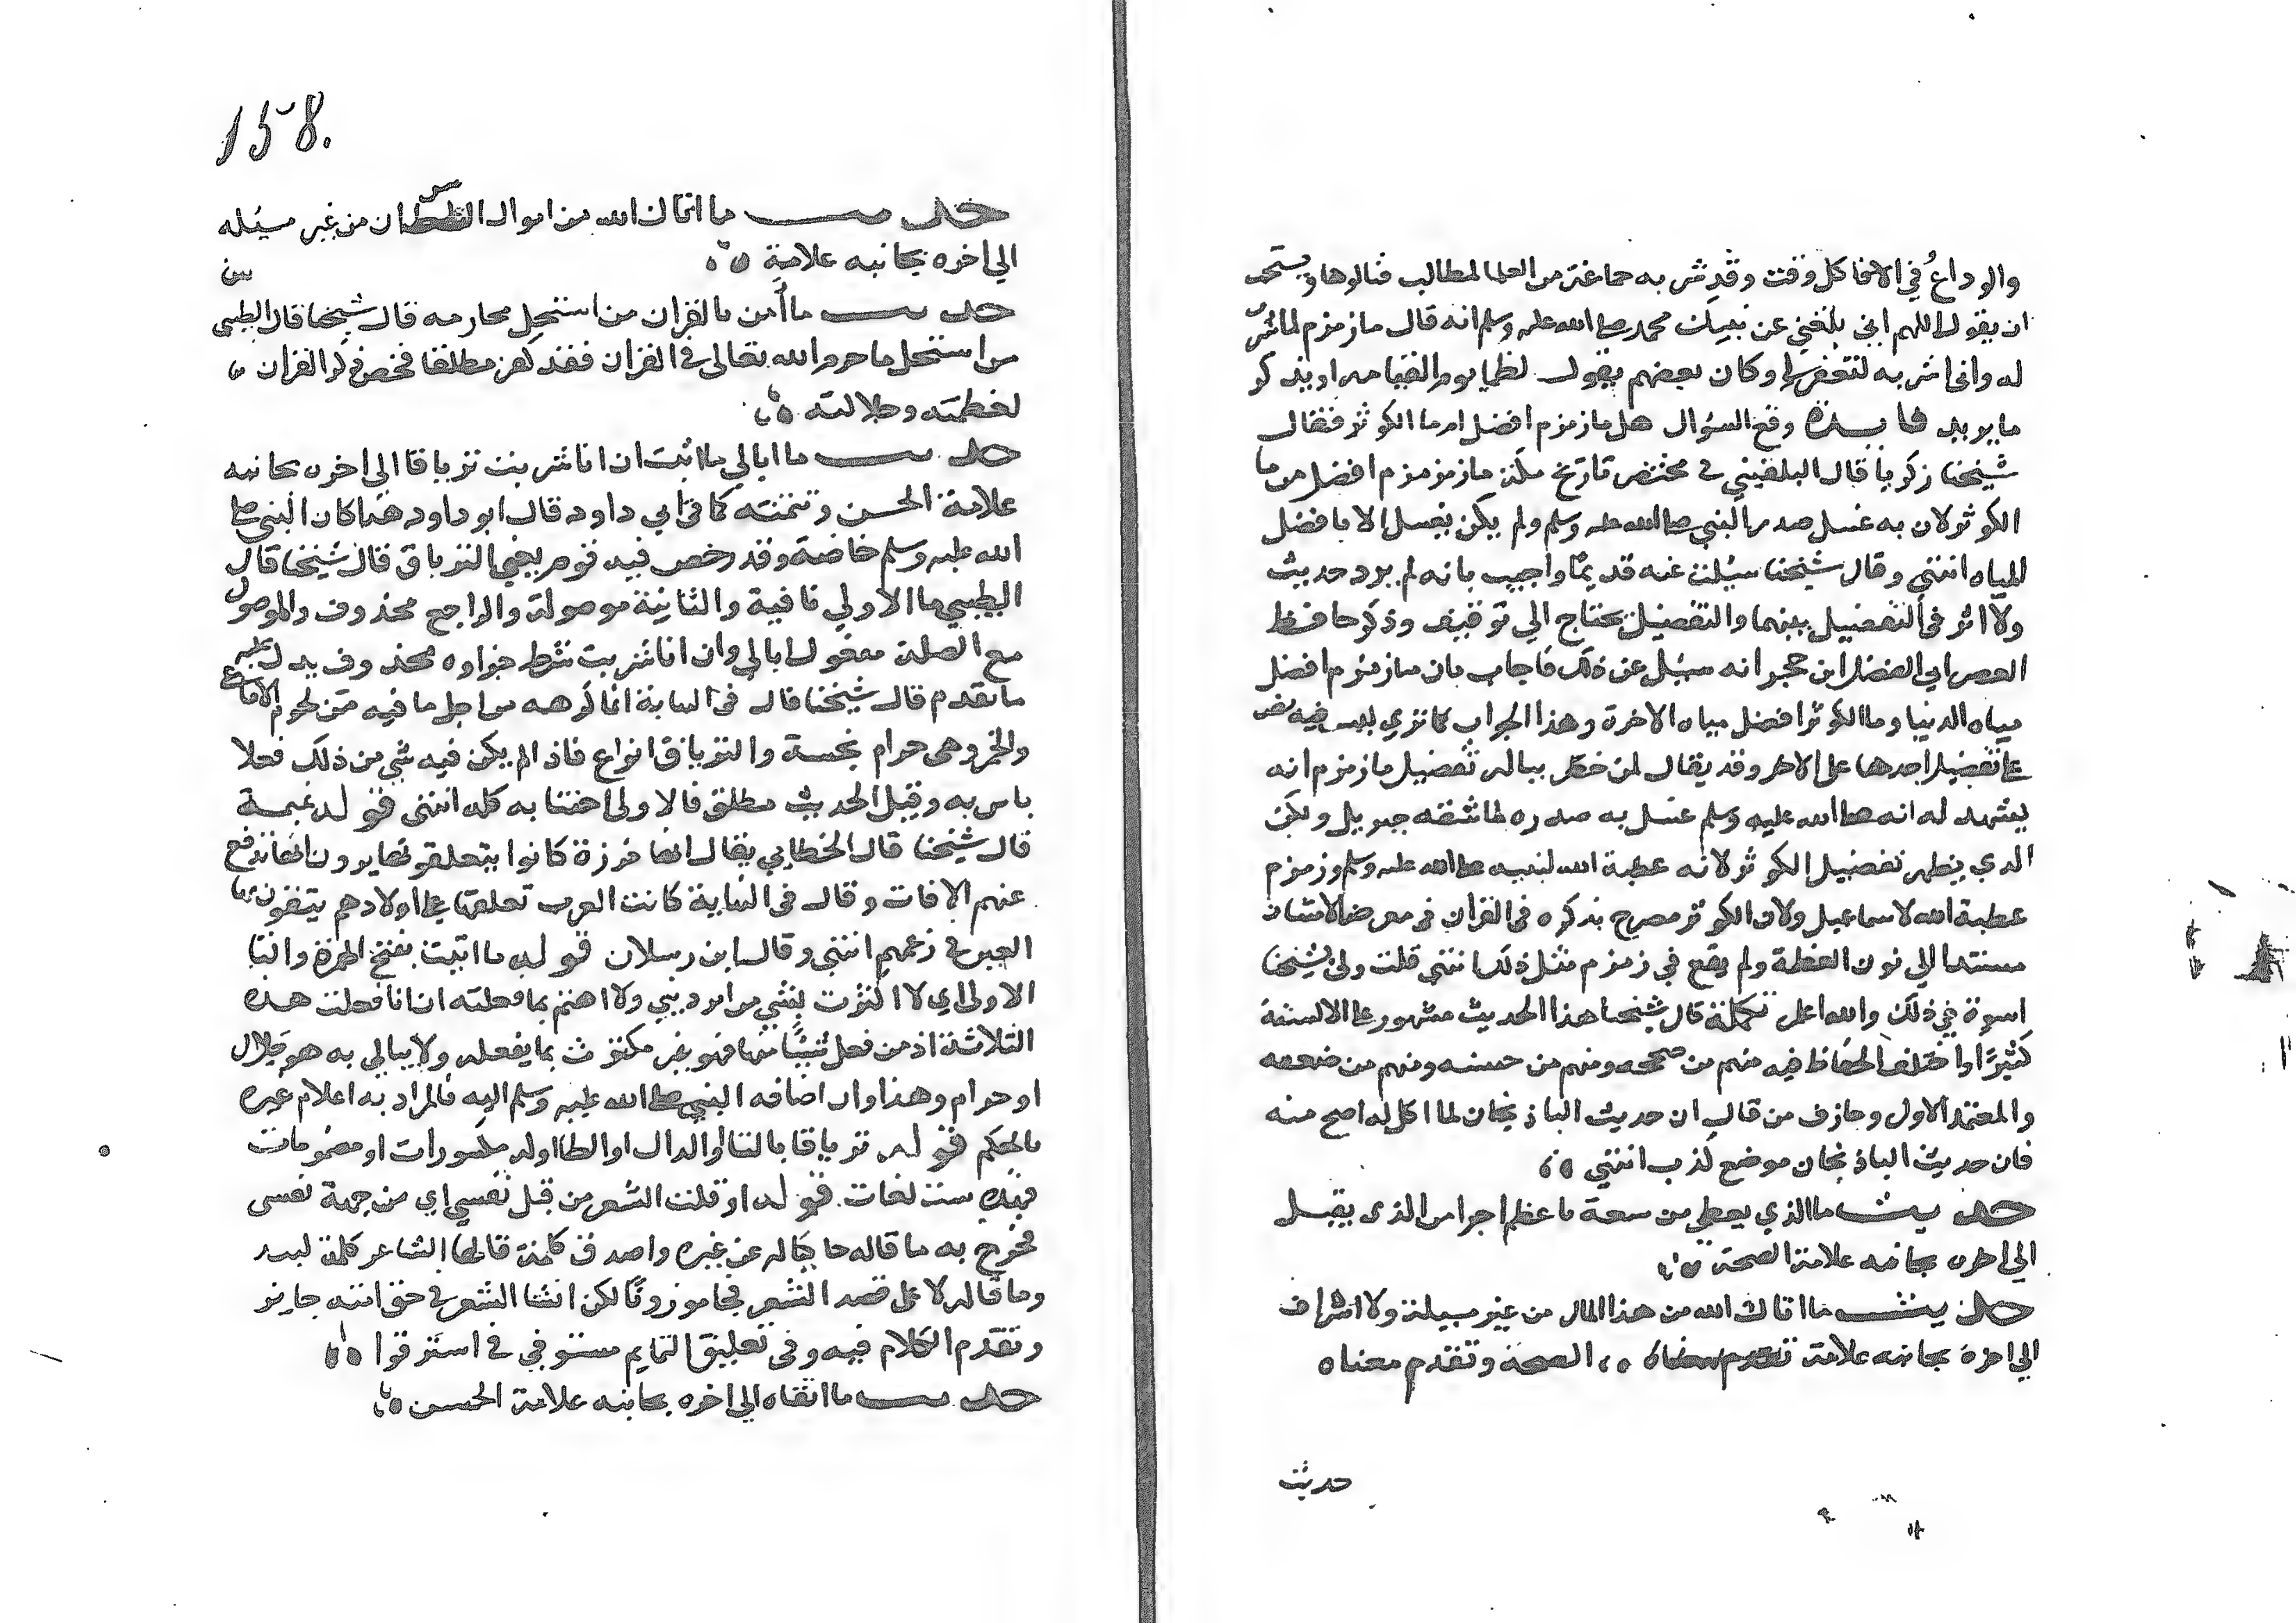 والوداع في الاخا كل وقت وقد شربه جماعة من العلما لمطالب فنالوها ويستحب
ان يقول اللهم اني بلغني عن نبيك محمد صلى الله عليه وسلم انه قال ما زمزم لما شرب
له واني اشربه لتغفر لي وكان بعضهم يقول لظما يوم القيامه او يذكر
ما يريد فايدة وقع السؤال هل ما زمزم افضل ام ما الكوثر فقال
شيخنا زكريا قال البلقيني في مختصر تاريخ مكة ما زمزم افضل من ما
الكوثر لان به غسل صدر النبي صلى الله عليه وسلم ولم يكن يغسل الا بافضل
المياه انتهي وقال شيخنا سيلت عنه قديما واجيب بانه لم يرد حديث
ولا اثر في التفضيل بينهما والتفضيل يحتاج الي توقيف وذكر حافظ
العصر ابي الفضل ابن حجر انه سيل عن ذلك فاجاب بان ما زمزم افضل
مياه الدنيا وما الكوثر افضل مياه الاخرة وهذا الجواب كما تري ليس فيه نص
على تفضيل احدهما على الاخر وقد يقال لمن خطر بباله تفضيل ما زمزم انه
يشهد له انه صلى الله عليه وسلم غسل به صدره لما شقه جبريل ولكن
الدي يظهر تفضيل الكوثر لانه عطية الله لنبيه صلى الله عليه وسلم وزمزم
عطية الله لاسماعيل ولان الكوثر مصرح بذكره في القران في معرض الامتنان
مسندا الي نون العظمة ولم يقع في زمزم مثل ذلك انتهي قلت ولي بشيخنا
اسوة في ذلك والله اعلم تكملة قال شيخنا هذا الحديث مشهور على الالسنة
كثيرًا واختلف الحفاظ فيه منهم من صححه ومنهم من حسنه ومنهم من ضعفه
والمعتمد الاول وجازف من قال ان حديث الباذنجان لما اكل له اصح منه
فان حديث الباذنجان موضع كذب انتهي
حديث ما الذي يعطي من سعة باعظم اجرا من الذي يقبل
الي اخره بجانبه علامة الصحة
حديث ما اتاك الله من هذا المال من غير مسيلة ولا اشراف
الي اخره بجانبه علامة الصحة وتقدم معناه
حديث
158.
حديث ما اتاك الله من اموال السلطان من غير مسيله
الي اخره بجانبه علامة
حديث ما أمن بالقران من استحل محارمه قال شيخنا قال الطيبي
من استحل ما حرم الله تعالى في القران فقد كفر مطلقا فخص ذكر القران
لعظمته وجلالته
حديث ما ابالي ما اتيت ان انا شربت ترياقا الي اخره بجانبه
علامة الحسن وتتمته كما في ابي داود قال ابو داود هذا كان للنبي صلى
الله عليه وسلم خاصة وقد رخص فيه قوم يعني الترياق قال شيخنا قال
الطيبي ما الاولي نافية والثانية موصولة والراجع محذوف والموصول
مع الصلة مفعول ابالي وان انا شربت شرط جزاوه محذوف يدل عليه
ما تقدم قال شيخنا قال في النهاية انما كرهه من اجل ما فيه من لحوم الافاعي
والخمر وهي حرام نجسة والترياق انواع فاذا لم يكن فيه شي من ذلك فلا
باس به وقيل الحديث مطلق فالاولي اجتنابه كله انتهي قوله تميمة
قال شيخنا قال الخطابي يقال انها خرزة كانوا يتعلقونها يرون انها تدفع
عنهم الافات وقال في النهاية كانت العرب تعلقها على اولادهم يتقون بها
العين في زعمهم انتهي وقال ابن رسلان قوله ما اتيت بفتح الهمزة والتا
الاولي اي لا اكترث بشي من امر ديني ولا اهتم بما فعلته ان انا فعلت هذه
الثلاثة اذ من فعل شيئًا منها فهو غير مكترث بما يفعله ولا يبالي به هو حلال
او حرام وهذا وان اضافه النبي صلى الله عليه وسلم اليه فالمراد به اعلام غيره
بالحكم قوله ترياقا بالتا او الدال او الطا اوله مكسورات او مضمومات
فهذه ست لغات قوله او قلت الشعر من قبل نفسي اي من جهة نفسي
فخرج به ما قاله حاكيا له عن غيره واصدق كلمة قالها الشاعر كلمة لبيد
وما قاله لا على قصد الشعر فجا موزونًا لكن انشا الشعر في حق امته جايز
وتقدم الكلام فيه وفي تعليق التمايم مستوفي في استرقوا
حديث ما اتقاه الي اخره بجانبه علامة الحسن